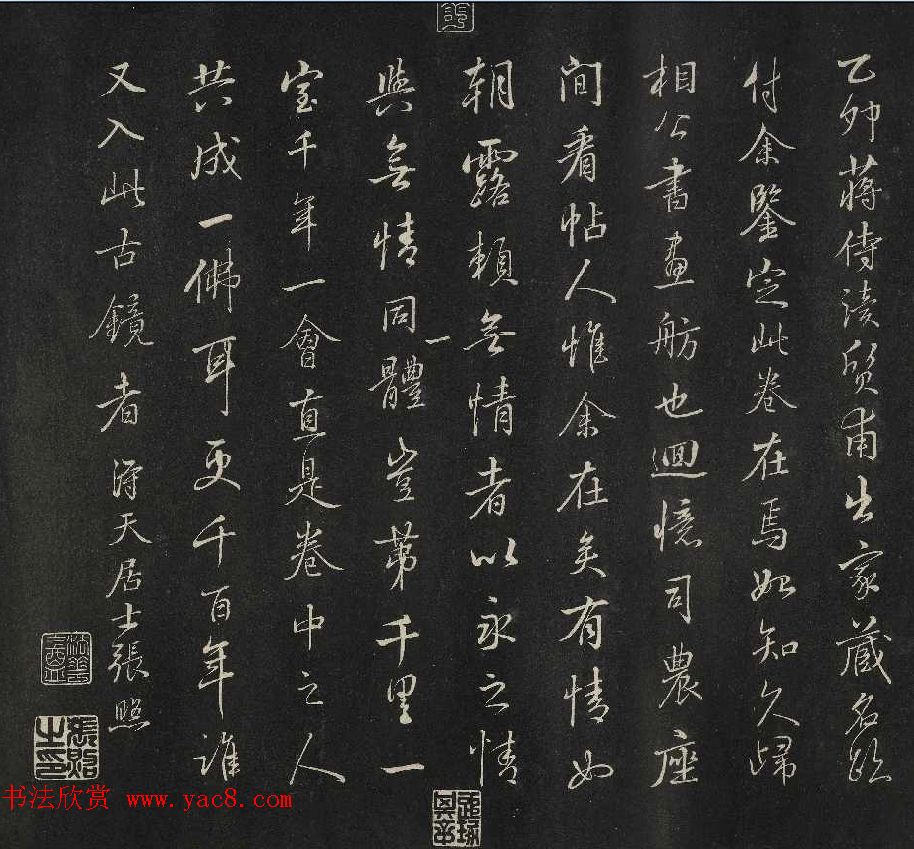 乙卯蔣侍讀質甫出家藏名跡
付余鑒定此卷在焉始知久歸
相公書畫舫也迴憶司農座
間看帖人惟余在矣有情如
朝露賴無情者以永之情
與無情同一體豈第千里一
室千年一會直是卷中之人
共成一佛耳更千百年誰
又入此古鏡者 得天居士張照
張照之印
书法欣赏 www.yac8.com